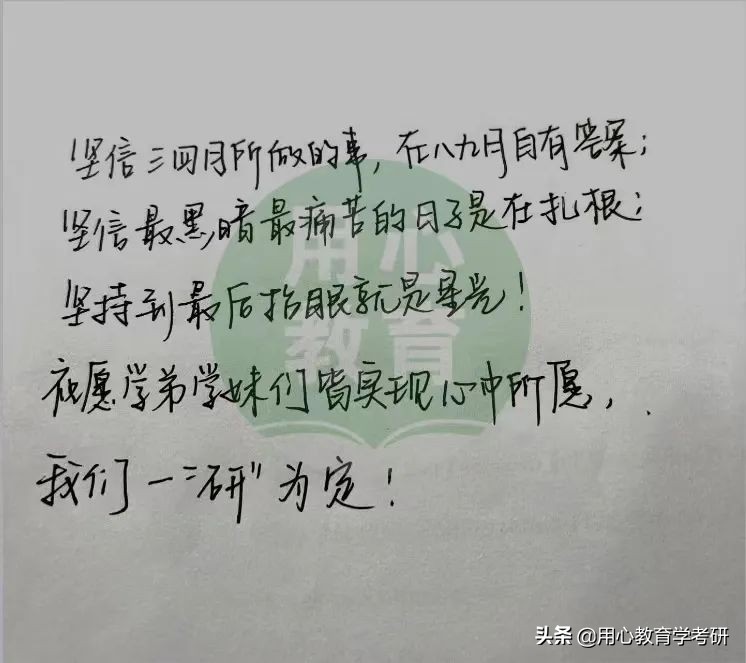 坚信三四月所做的事，在八九月自有答案；
坚信最黑暗最痛苦的日子是在扎根；
坚持到最后抬眼就是星光！
祝愿学弟学妹们皆实现心中所愿，
我们一“研”为定！
用心
教育
头条 @用心教育学考研